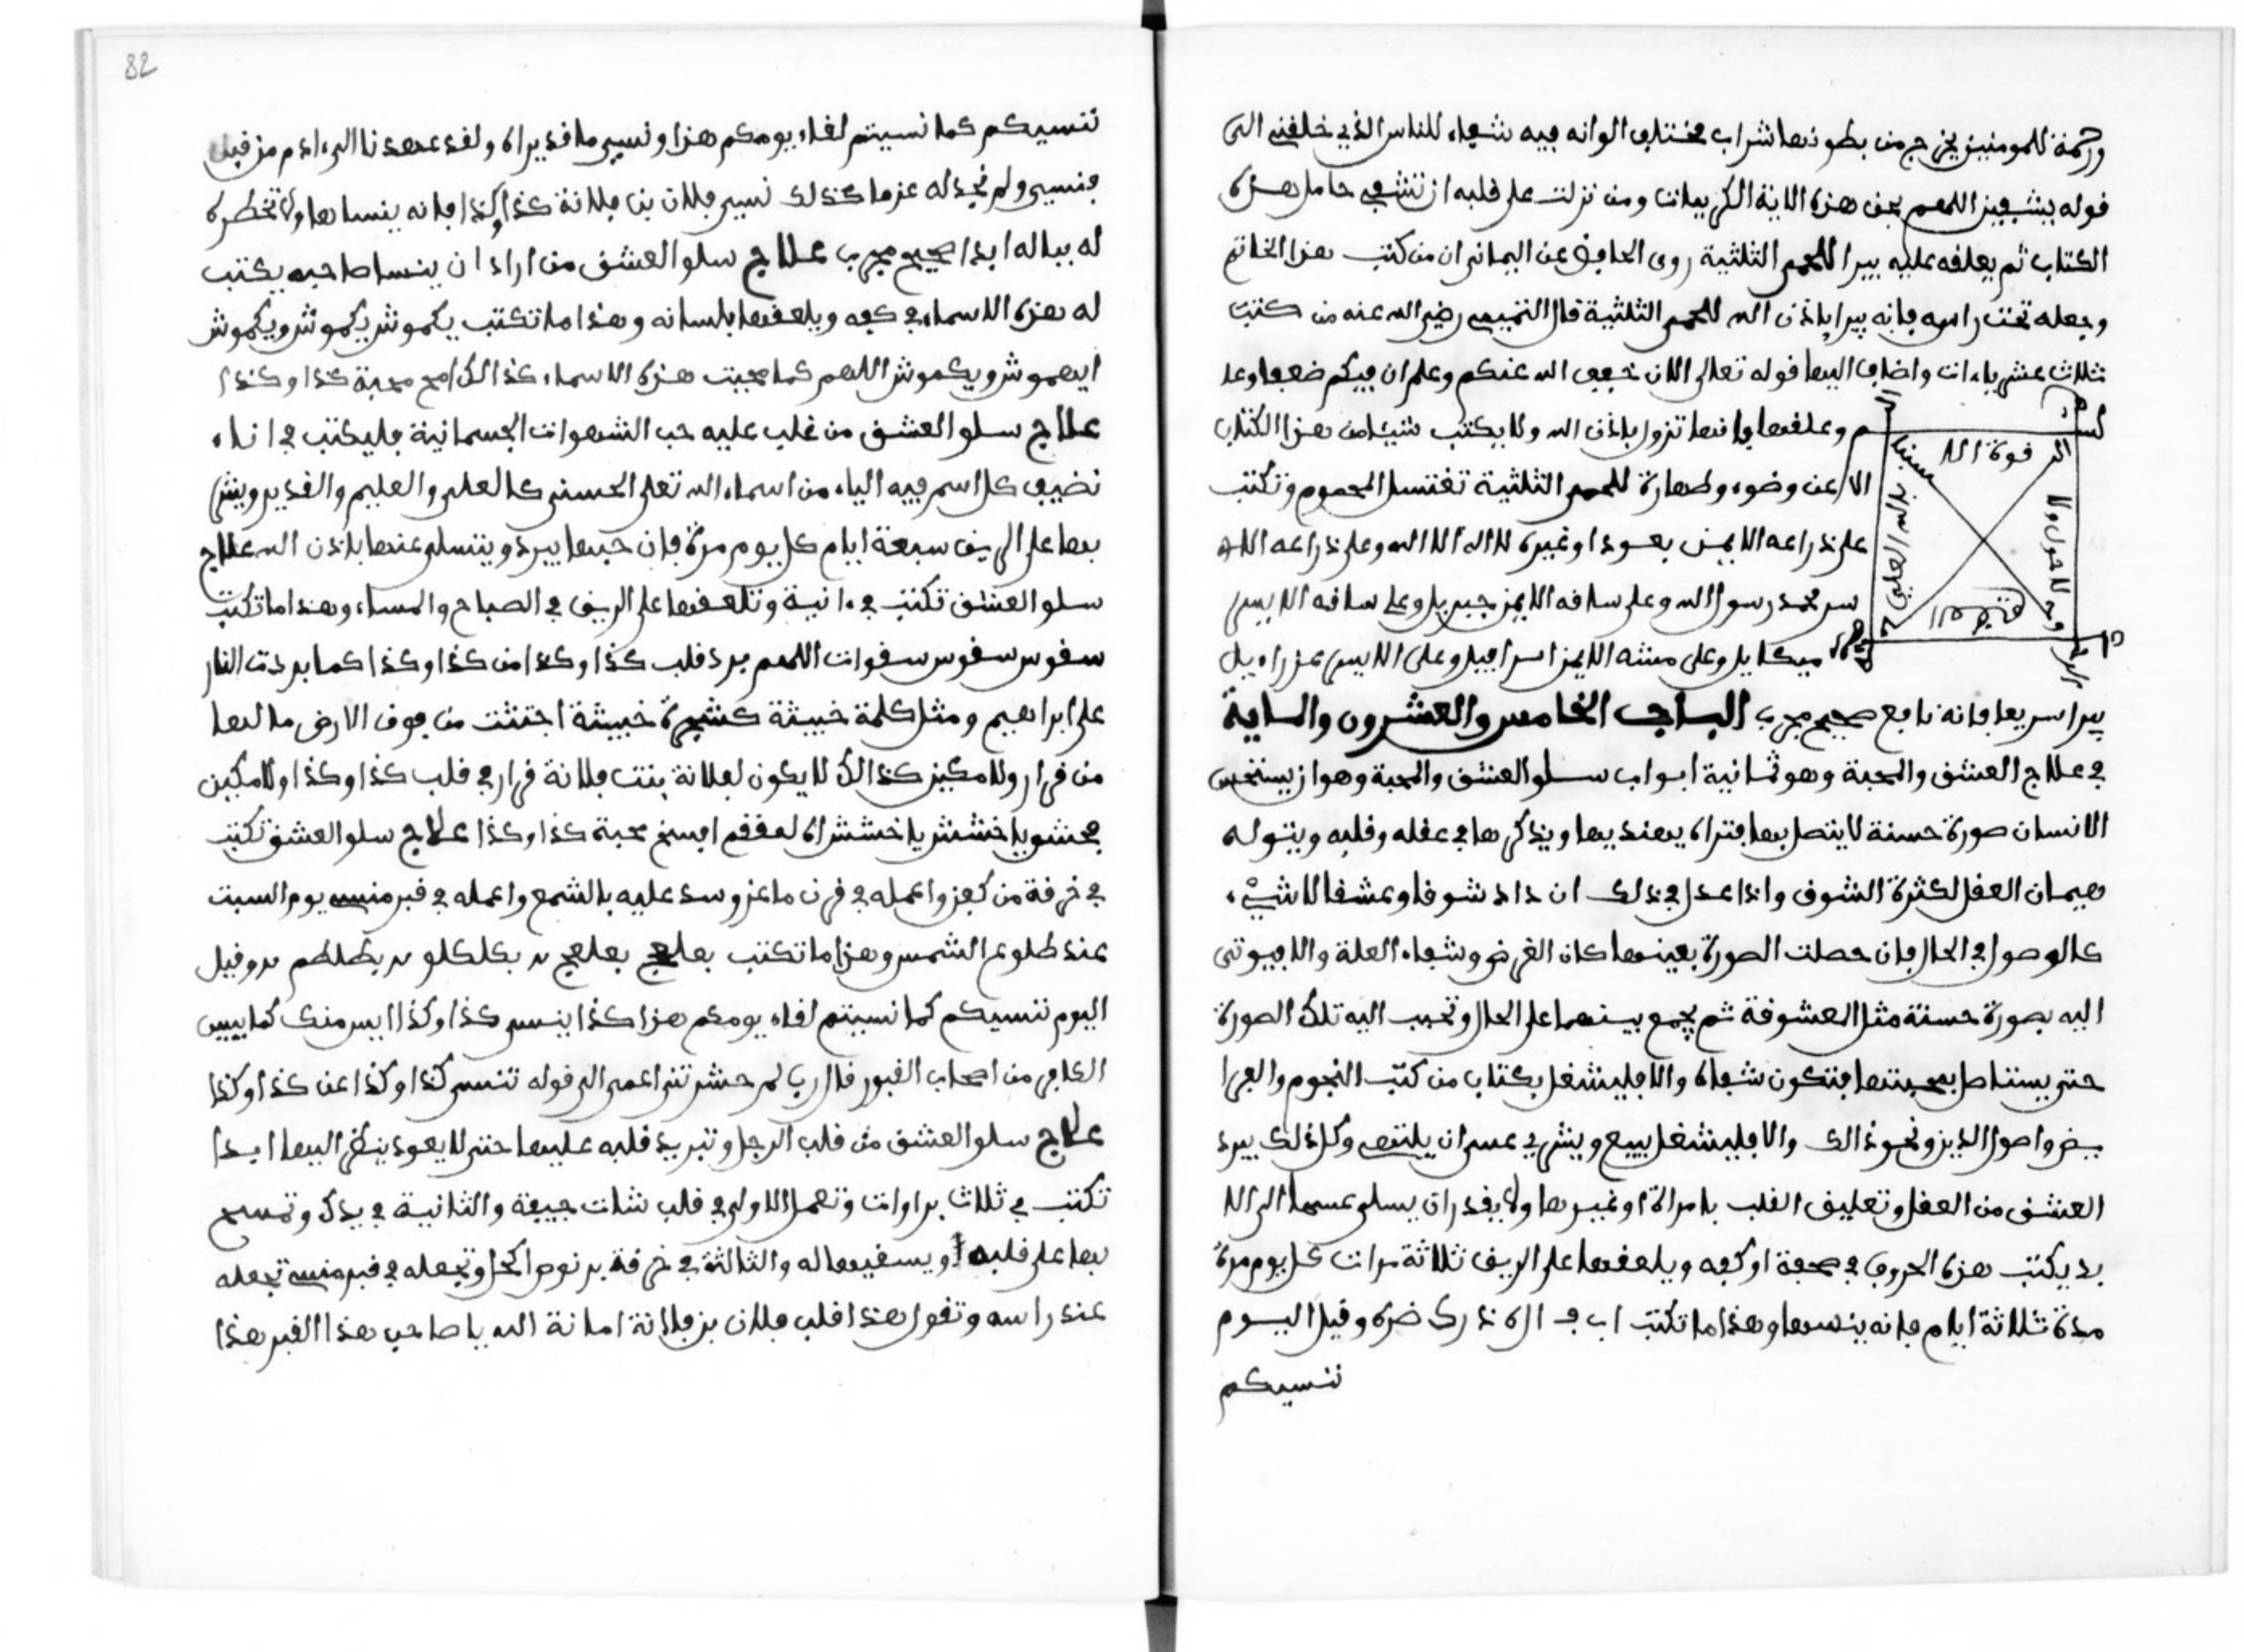 ورحمة للمومنين يخرج من بطونها شراب مختلف الوانه فيه شفاء للناس الذي خلقني الى
قوله يشفين اللهم بحق هذه الاية الكريمات ومن نزلت على قلبه ان تشفي حامل هذه
الكتاب ثم يعلقه عليه يبرا للحمى الثلثية روى الحافظ عن اليماني ان من كتب هذا الخاتم
وجعله تحت راسه فانه يبرا باذن الله للحمى الثلثية قال التميمي رضي الله عنه من كتب
ثلاث عشر ياءات واضاف اليها قوله تعالى الان خفف الله عنكم وعلم ان فيكم ضعفا وعد
م وعلقها فانها تزول باذن الله ولا يكتب شيئا من هذا الكتاب
الا عن وضوء وطهارة للحمى الثلثية تغتسل المحموم وتكتب
على ذراعه الايمن بعود او غيره لا اله الا الله وعلى ذراعه الا
سر محمد رسول الله وعلى ساقه الايمن جبريل وعلى ساقه الايسر
ميكايل وعلى متنه الايمن اسرافيل وعلى الايسر عزراءيل
قوة الا
لا حول ولا
بالله العلي
حسبنا
يبرا سريعا فانه نافع صحيح مجرب الباب الخامس والعشرون والماية
في علاج العشق والمحبة وهو ثمانية ابواب سلو العشق والمحبة وهو ان يستحسن
الانسان صورة حسنة لا يتصل بها فتراه يهتد بها ويذكرها في عقله وقلبه ويتوله
هيمان العقل لكثرة الشوق واذا عدل في ذلك ان داد شوقا وعشقا للاشيء
كالوصول في الحال فان حصلت الصورة بعينها كان الغرض وشفاء العلة والا فيوتى
اليه بصورة حسنة مثل المعشوقة ثم يجمع بينهما على الحال وتحبب اليه تلك الصورة
حتى يستاصل بمحبتها فتكون شفاه والا فليشغل بكتاب من كتب النجوم والفرا
يض واصول الدين ونحو ذالك والا فليشغل ببيع ويشري عسى ان يلتهى وكل ذلك يبرد
العشق من العقل وتعليق القلب بامراة او غيرها ولا يقدر ان يسلى عسها الى الا
بد يكتب هذه الحروف في صحفة او كفه ويلعقها على الريق ثلاثة مرات كل يوم مرة
مدة ثلاثة ايام فانه ينسها وهذا ما تكتب اب ف اله ذرك ضره وقيل اليوم
ننسيكم
82
ننسيكم كما نسيتم لقاء يومكم هذا ونسي ما قد يراه ولقد عهدنا الى ءادم من قبل
فنسي ولم نجد له عزما كذلك نسي فلان بن فلانة كذا وكذا فانه ينساها ولا تخطره
له بباله ابدا صحيح مجرب علاج سلو العشق من اراد ان ينسا صاحبه يكتب
له هذه الاسماء في كفه ويلعقها بلسانه وهذا ما تكتب يكموش يكموش ويكموش
ايهموش ويكموش اللهم كما محيت هذه الاسماء كذالك امح محبة كذا وكذا
علاج سلو العشق من غلب عليه حب الشهوات الجسمانية فليكتب في اناء
نضيف كل اسم فيه الياء من اسماء الله تعلى الحسنى كالعلي والعليم والقدير ويشر
بها على الريق سبعة ايام كل يوم مرة فان حبها يبرد ويتسلى عنها باذن الله علاج
سلو العشق تكتب في ءانية وتلعقها على الريق في الصباح والمساء وهذا ما تكتب
سقوس سقوس سقوات اللهم برد قلب كذا وكذا من كذا وكذا كما بردت النار
على ابراهيم ومثل كلمة خبيثة كشجرة خبيثة اجتثت من فوق الارض ما لها
من قرار ولا مكين كذالك لا يكون لفلانة بنت فلانة قرار في قلب كذا وكذا ولا مكين
فحشويا خشش يا خششراه لعقفم افسخ محبة كذا وكذا علاج سلو العشق تكتب
في خرقة من كفن واعمله في قرن ماعز وسد عليه بالشمع واعمله في قبر منسي يوم السبت
عند طلوع الشمس وهذا ما تكتب بعلعج بعلعج به بكلكلو به بطلطم به وقيل
اليوم ننسيكم كما نسيتم لقاء يومكم هذا كذا ينسى كذا وكذا ايس منك كما ييس
الكافر من اصحاب القبور قال رب لم حشرتني اعمى الى قوله تنسى كذا وكذا عن كذا وكذا
علاج سلو العشق من قلب الرجل وتبريد قلبه عليها حتى لا يعود ينظر اليها ابدا
تكتب في ثلاث براوات وتعمل الاولى في قلب شات جيفة والثانية في يدك وتمسح
بها على قلبه او يسقيها له والثالثة في خرقة برنوص اكحل وتجعله في قبر منسي تجعله
عند راسه وتقول هذا قلب فلان بن فلانة امانة الله يا صاحب هذا القبر هذا